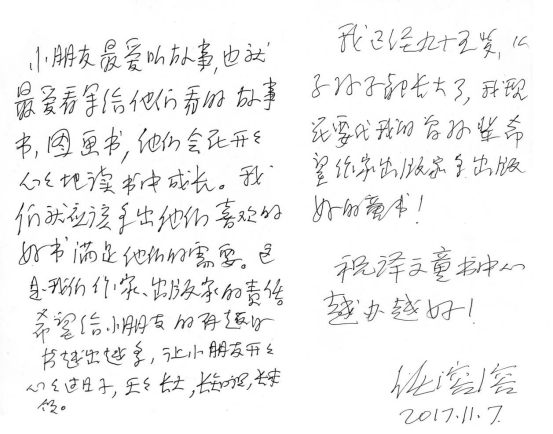 小朋友最爱听故事,也就
最爱看写给他们看的故事
书,图画书,他们会在开开
心心地读书中成长。我
们就应该多出他们喜欢的
好书满足他们的需要。这
是我们作家、出版家的责任。
希望给小朋友的有趣的
书越出越多,让小朋友开开
心心过日子,天天长大,长知识,长本
领。
我已经九十五岁,
子孙子都长大了,我现
在要代我的曾孙辈希
望作家出版家多出版
好的童书!
祝译文童书中心
越办越好!
任溶溶
2017.11.7.